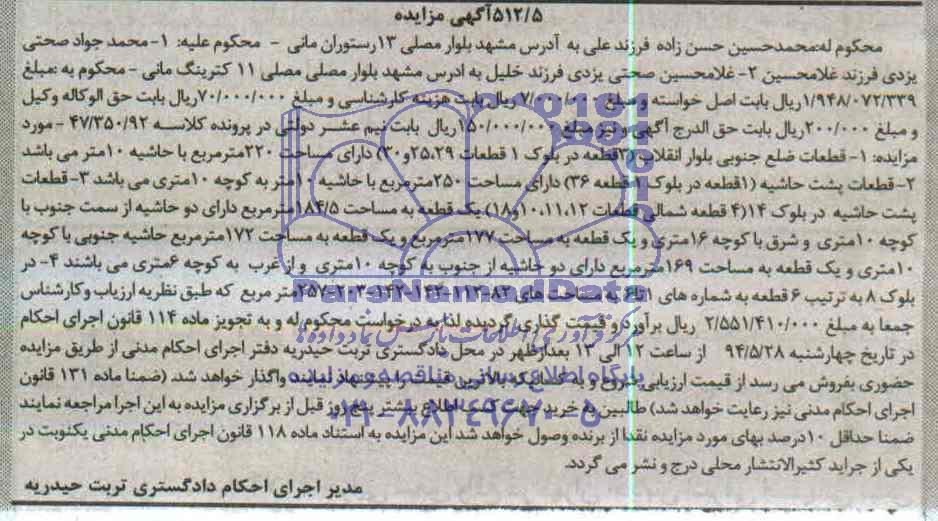 ۵۱۲/۵آگهی مزایده
محکوم له:محمدحسین حسن زاده فرزند علی به آدرس مشهد بلوار مصلی ۱۳رستوران مانی - محکوم علیه: ۱-محمد جواد صحتی
یزدی فرزند غلامحسین ۲- غلامحسین صحتی یزدی فرزند خلیل به ادرس مشهد بلوار مصلی مصلی ۱۱ کترینگ مانی - محکوم به :مبلغ
۱/۹۴۸/۰۷۲/۳۳۹ریال بابت اصل خواسته و مبلغ ریال بابت هزینه کارشناسی و مبلغ ۷۰/۰۰۰/۰۰۰ریال بابت حق الوکاله وکیل
و مبلغ ۲۰۰/۰۰۰ریال بابت حق الدرج آگهی و نیز مبلغ ۱۵۰/۰۰۰/۰۰۰ریال بابت نیم عشر دولتی در پرونده کلاسه ۴۷/۳۵۰/۹۲ - مورد
مزایده: ۱- قطعات ضلع جنوبی بلوار انقلاب (۳قطعه در بلوک ۱ قطعات ۲۵،۲۹و۳۰) دارای مساحت ۲۲۰مترمربع با حاشیه ۱۰متر می باشد
۲- قطعات پشت حاشیه (۱قطعه در بلوک ۱ قطعه ۳۶) دارای مساحت ۲۵۰مترمربع با حاشیه ۱۰متر به کوچه ۱۰متری می باشد ۳- قطعات
پشت حاشیه در بلوک ۱۴(۴ قطعه شمالی قطعات ۱۰،۱۱،۱۲و۱۸) یک قطعه به مساحت ۱۸۴/۵مترمربع دارای دو حاشیه از سمت جنوب با
کوچه ۱۰متری و شرق با کوچه ۱۶متری و یک قطعه به مساحت ۱۷۷مترمربع و یک قطعه به مساحت ۱۷۲مترمربع حاشیه جنوبی با کوچه
۱۰متری و یک قطعه به مساحت ۱۶۹مترمربع دارای دو حاشیه از جنوب به کوچه ۱۰متری و از غرب به کوچه ۶متری می باشند ۴- در
بلوک ۸ به ترتیب ۶ قطعه به شماره های ۱تا۶ به مساحت های متر مربع که طبق نظریه ارزیاب وکارشناس
جمعا به مبلغ ۲/۵۵۱/۴۱۰/۰۰۰ ریال برآورد و قیمت گذاری گردیده لذا به درخواست محکوم له و به تجویز ماده ۱۱۴ قانون اجرای احکام
در تاریخ چهارشنبه ۹۴/۵/۲۸ از ساعت ۱۲ الی ۱۳ بعدازظهر در محل دادگستری تربت حیدریه دفتر اجرای احکام مدنی از طریق مزایده
حضوری بفروش می رسد از قیمت ارزیابی شروع و به کسانی که بالاترین قیمت را پیشنهاد نمایند واگذار خواهد شد. (ضمنا ماده ۱۳۱ قانون
اجرای احکام مدنی نیز رعایت خواهد شد) طالبین به خرید جهت کسب اطلاع بیشتر پنج روز قبل از برگزاری مزایده به این اجرا مراجعه نمایند
ضمنا حداقل ۱۰درصد بهای مورد مزایده نقدا از برنده وصول خواهد شد این مزایده به استناد ماده ۱۱۸ قانون اجرای احکام مدنی یکنوبت در
یکی از جراید کثیرالانتشار محلی درج و نشر می گردد.
مدیر اجرای احکام دادگستری تربت حیدریه
ParsNamadData
پایگاه اطلاع رسانی مناقصه و مزایده
۰۲۱-۸۸۳۴۹۶۷۰-۵